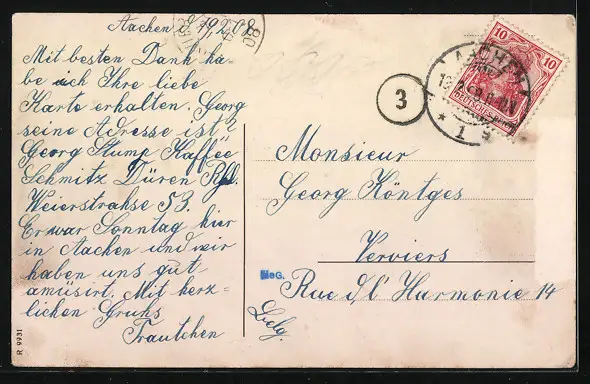 Aachen d 19.2.08
Mit besten Dank ha-
be ich Ihre liebe
Karte erhalten. Georg
seine Adresse ist?
Georg Stump Kaffée
Schmitz Düren Rhl.
Weierstrahse 53.
Er war Sonntag hier
in Aachen und wir
haben uns gut
amüsirt. Mit herz=
lichen Gruhs
Trautchen
R 9931
3
10 10
AACHEN
DEUTSCHES
* 1 g
Monsieur
Georg Köntges
Verviers
Rue d/l' Harmonie 14
Belg.